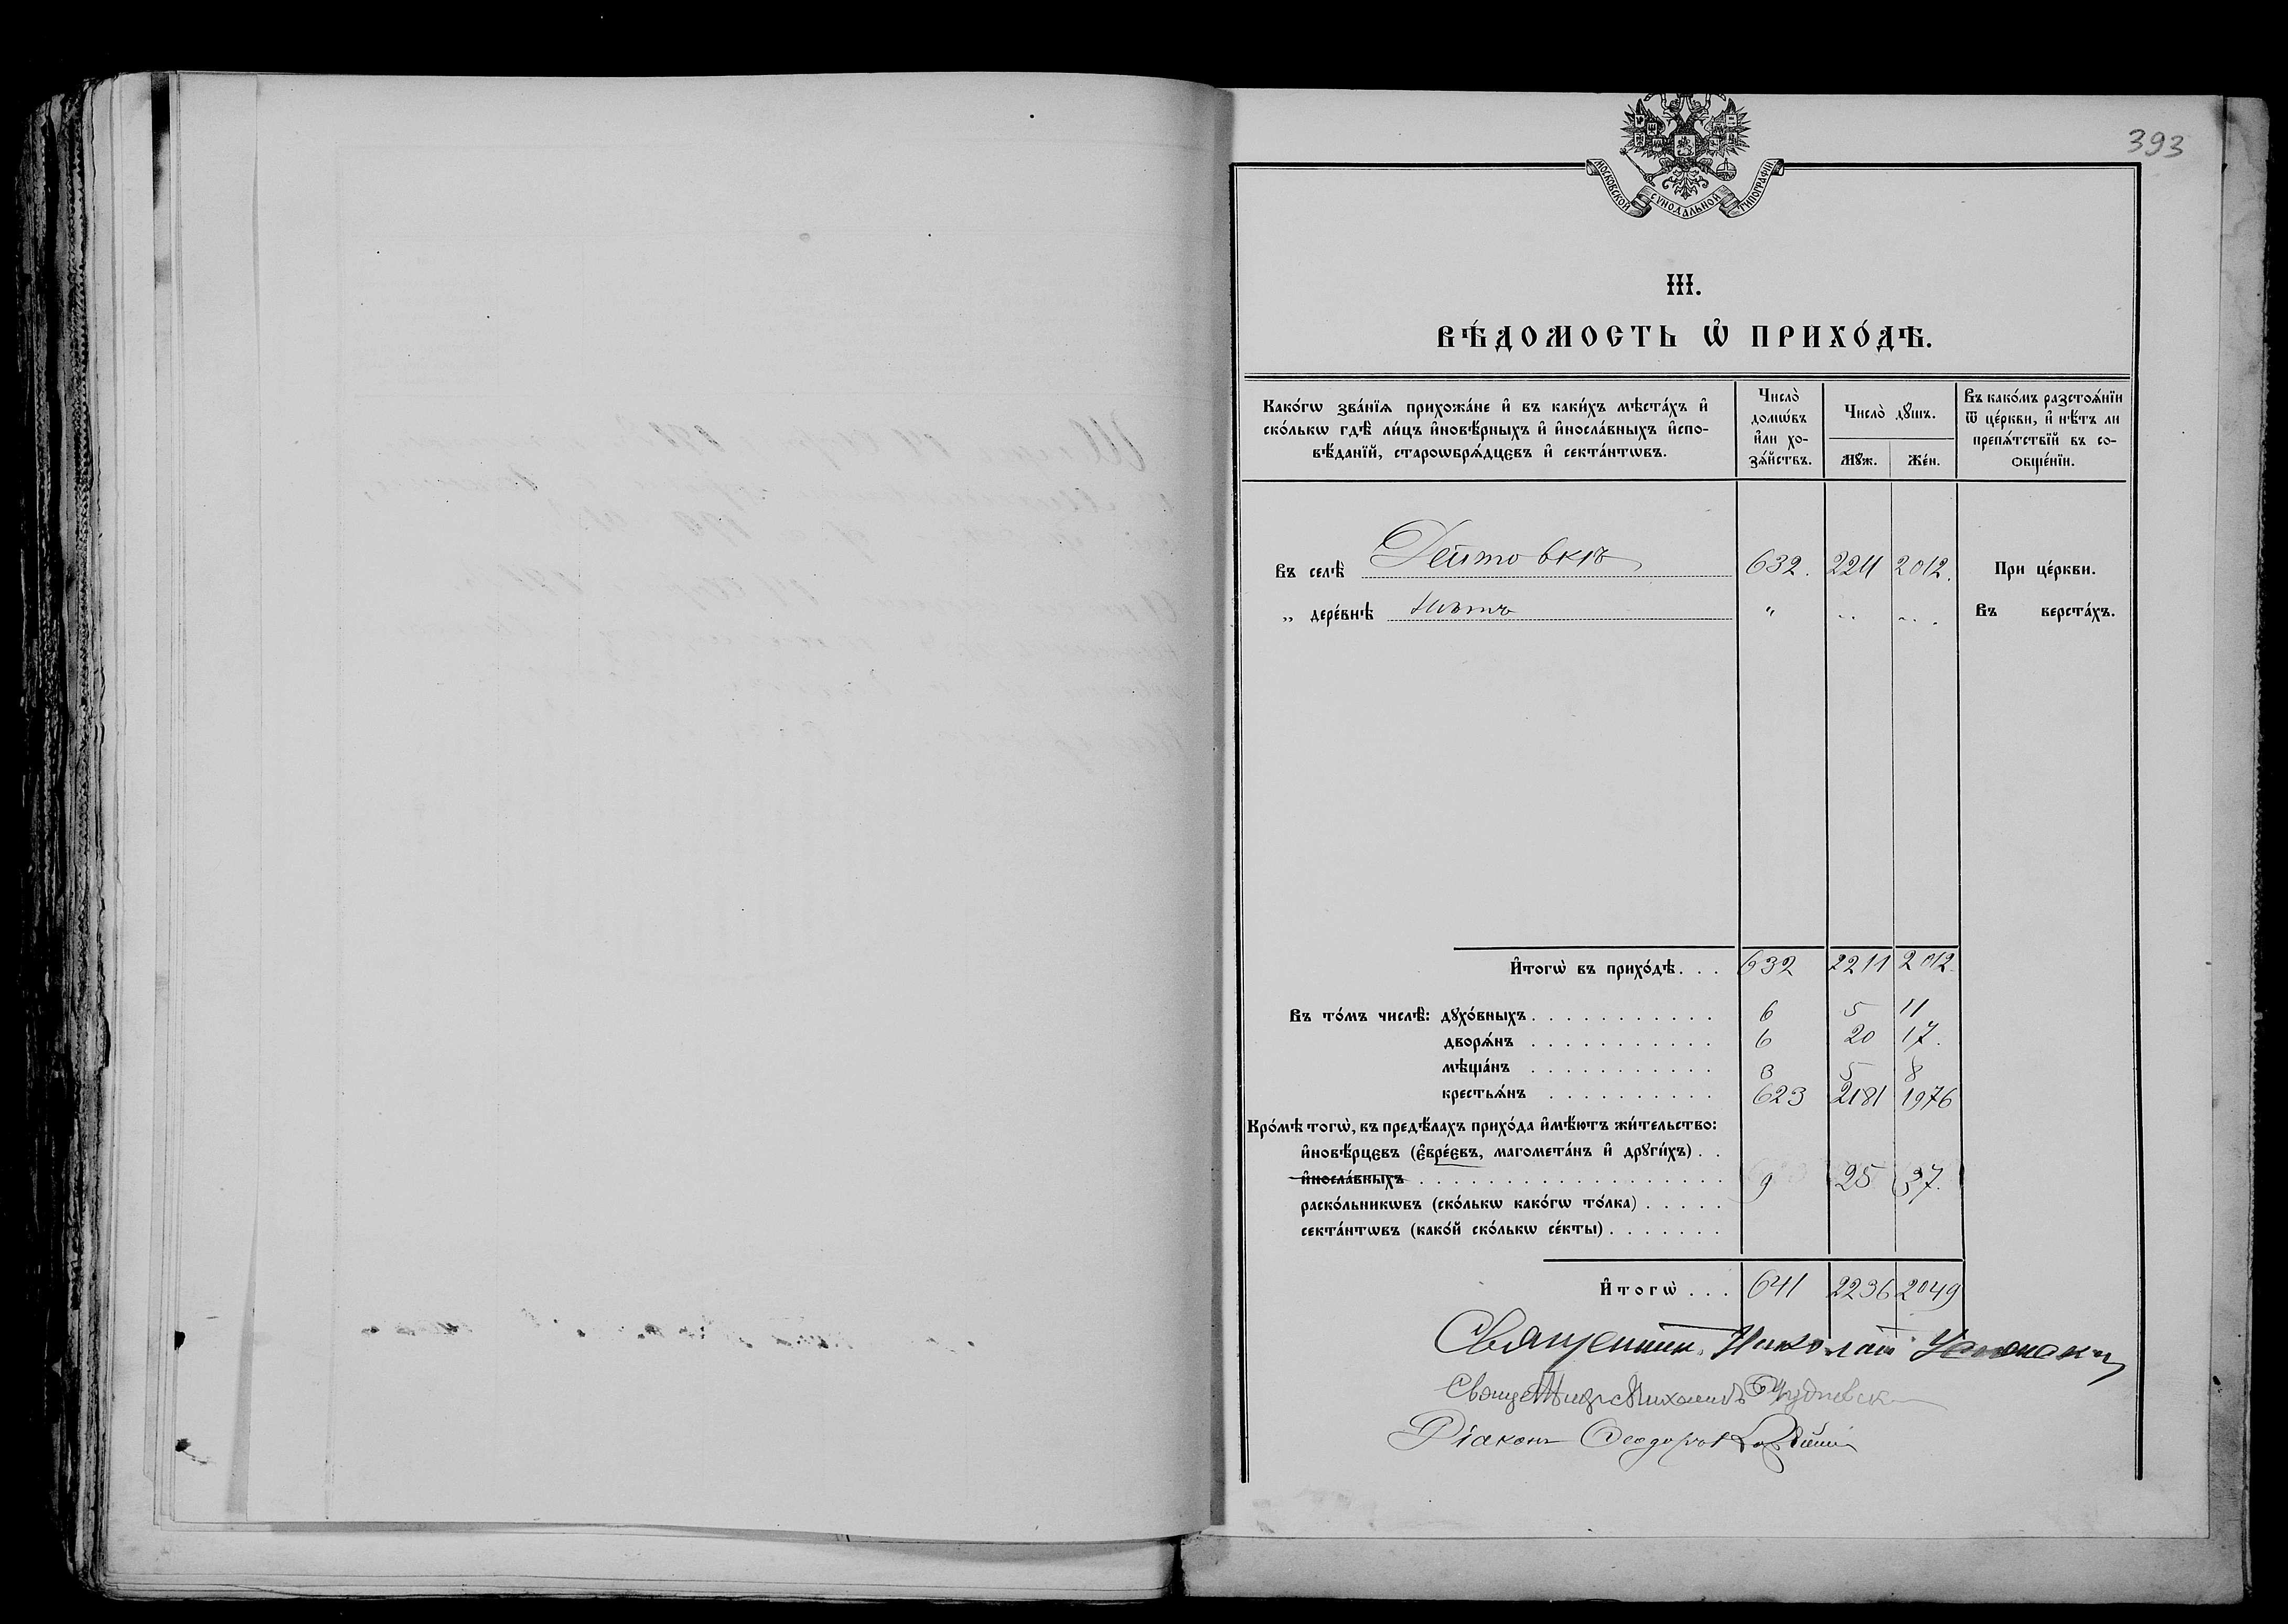 393
МОСКОВСКОЙ СѴНОДАЛЬНОЙ ТИПОГРАФІИ
III.
ВѢ́ДОМОСТЬ Ѡ҆ ПРИХО́ДѢ.
Како́гѡ зва́нїѧ прихожа́не и҆ въ каки́хъ мѣста́хъ и҆
ско́лькѡ гдѣ̀ ли́цъ и҆новѣ́рныхъ и҆ и҆носла́вныхъ и҆спо-
вѣ́данїй, староѡбрѧ́дцевъ и҆ секта́нтѡвъ.
Число̀
домѡ́въ
и҆̀ли хо-
зѧ́йствъ.
Число̀ дꙋ́шъ.
Мꙋ́ж.
Же́н.
Въ како́мъ разстоѧ́нїи
ѿ це́ркви, и҆ нѣ́тъ ли
препѧ́тствїй въ со-
ѻбще́нїи.
Въ селѣ̀ Дептовкѣ 632. 2211 2012. При це́ркви.
„ дере́внѣ нѣтъ " .. ... Въ верста́хъ.
И҆тогѡ̀ въ прихо́дѣ. . . 632 2211 2012.
Въ то́мъ числѣ̀: дꙋхо́вныхъ . . . . . . . . . . . 6 5 11
дворѧ́нъ . . . . . . . . . . . 6 20 17.
мѣща́нъ . . . . . . . . . . . 3 5 8
крестьѧ́нъ . . . . . . . . . . 623 2181 1976
Кро́мѣ тогѡ̀, въ предѣ́лахъ прихо́да и҆мѣ́ютъ жи́тельство:
и҆новѣ́рцевъ (є҆вре́євъ, магомета́нъ и҆ дрꙋги́хъ) . .
и҆носла́вныхъ . . . . . . . . . . . . . . . . . . 9 25 37.
раско́льникѡвъ (ско́лькѡ како́гѡ то́лка) . . . . .
секта́нтѡвъ (како́й ско́лькѡ се́кты) . . . . . . .
И҆тогѡ̀ . . . 641 2236 2049
Священник Николай
Священникъ Михаилъ
Діаконъ Ѳеодоръ